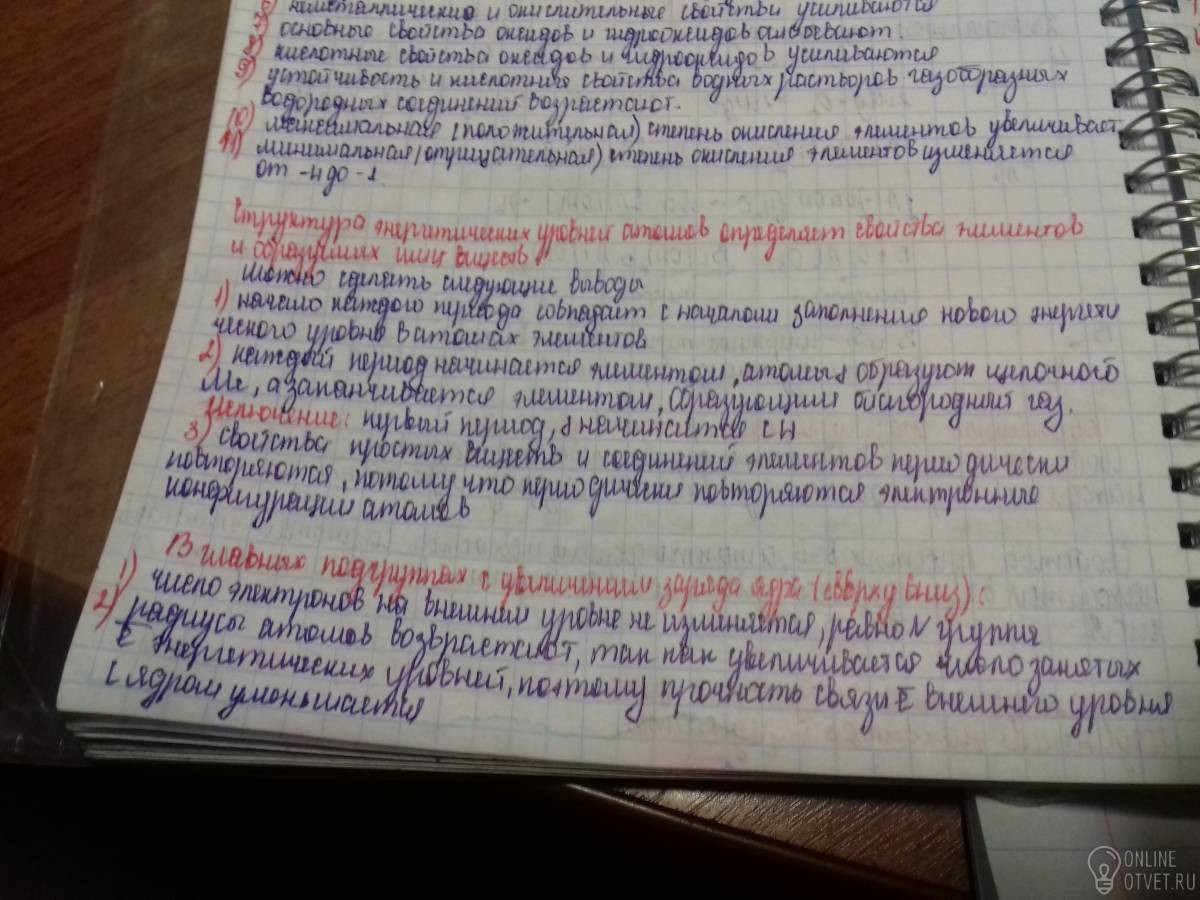 неметаллические и окислительные свойства усиливаются
основные свойства оксидов и гидрооксидов ослабевают.
8) кислотные свойства оксидов и гидрооксидов усиливаются
9) устойчивость и кислотная свойства водных растворов газобразных
водородных соединений возрастают.
10) максимальная (положительная) степень окисления элементов увеличивает
11) минимальная (отрицательная) степень окисления элементов изменяется
от -4 до -1.
Структура энергетических уровней атомов определяет свойства элементов
и образуемых ими веществ.
Можно сделать следующие выводы
1) начало каждого периода совпадает с началом заполнения нового энергети
ческого уровня в атомах элементов
2) каждый период начинается элементом, атомы образуют щелочного
Ме, а заканчивается элементом, образующим благородный газ.
Заключение: первый период, начинается с H
3) свойства простых веществ и соединений элементов периодически
повторяются, потому что периодически повторяются электронные
конфигурации атомов
В главных подгруппах с увеличением заряда ядра (сверху вниз):
1) число электронов на внешнем уровне не изменяется, равно N группы
2) радиусы атомов возврастают, так как увеличивается число занятых
ē энергетических уровней, поэтому прочность связи ē внешнего уровня
с ядром уменьшается
ONLINE
OTVET.RU